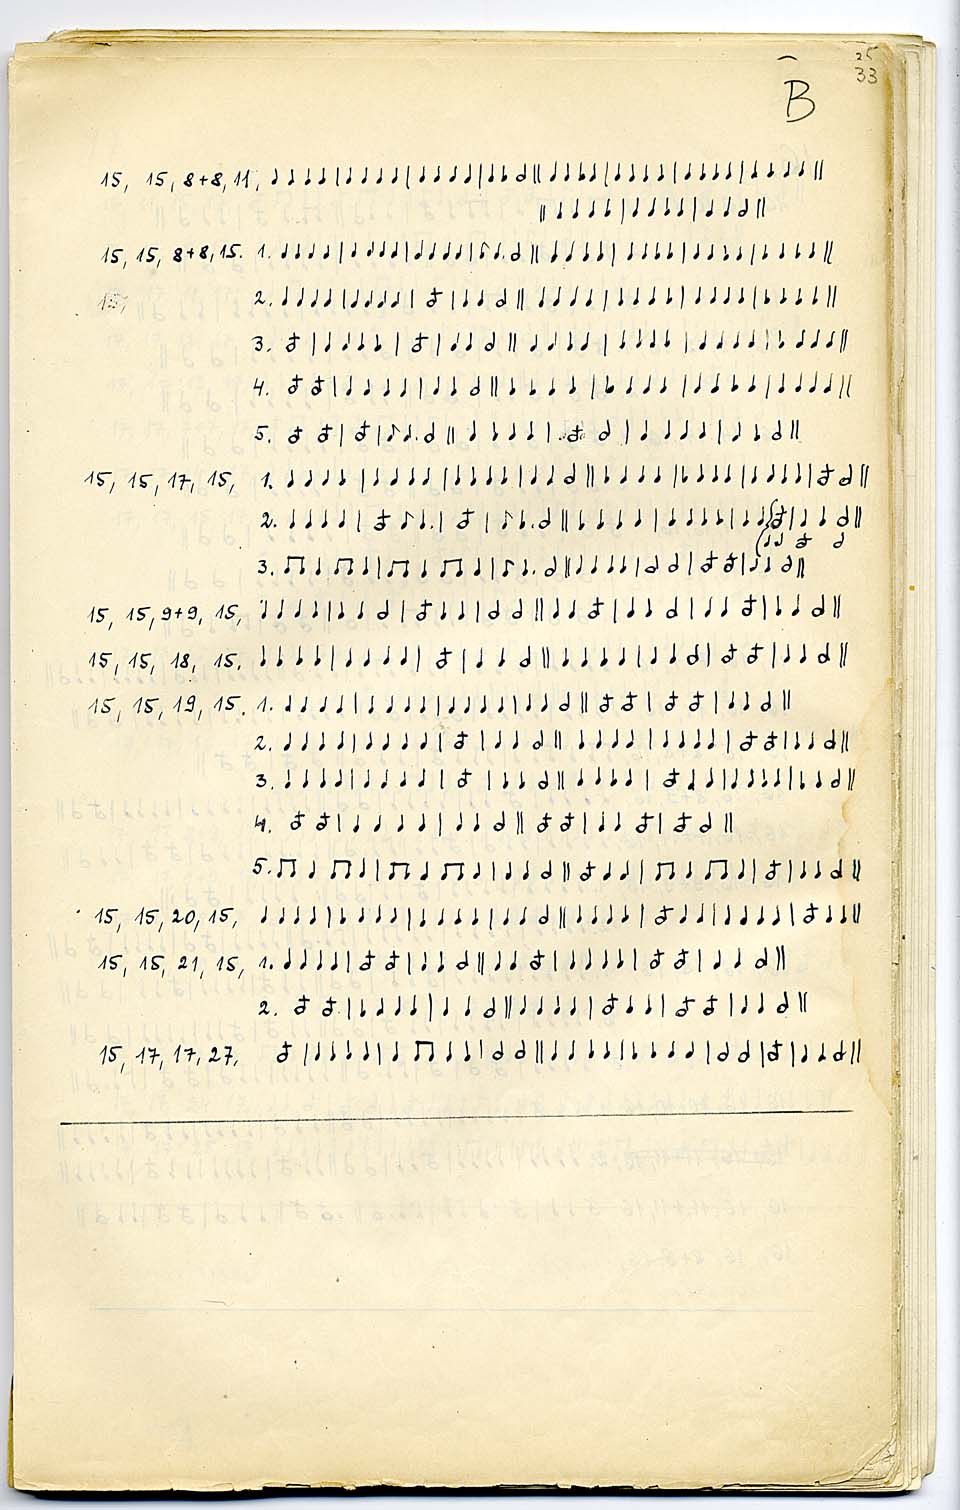 25
33
B
15, 15, 8+8, 11,
15, 15, 8+8, 15. 1.
15, 2.
3.
4.
5.
15, 15, 17, 15, 1.
2.
3.
15, 15, 9+9, 15,
15, 15, 18, 15.
15, 15, 19, 15. 1.
2.
3.
4.
5.
15, 15, 20, 15,
15, 15, 21, 15, 1.
2.
15, 17, 17, 27,